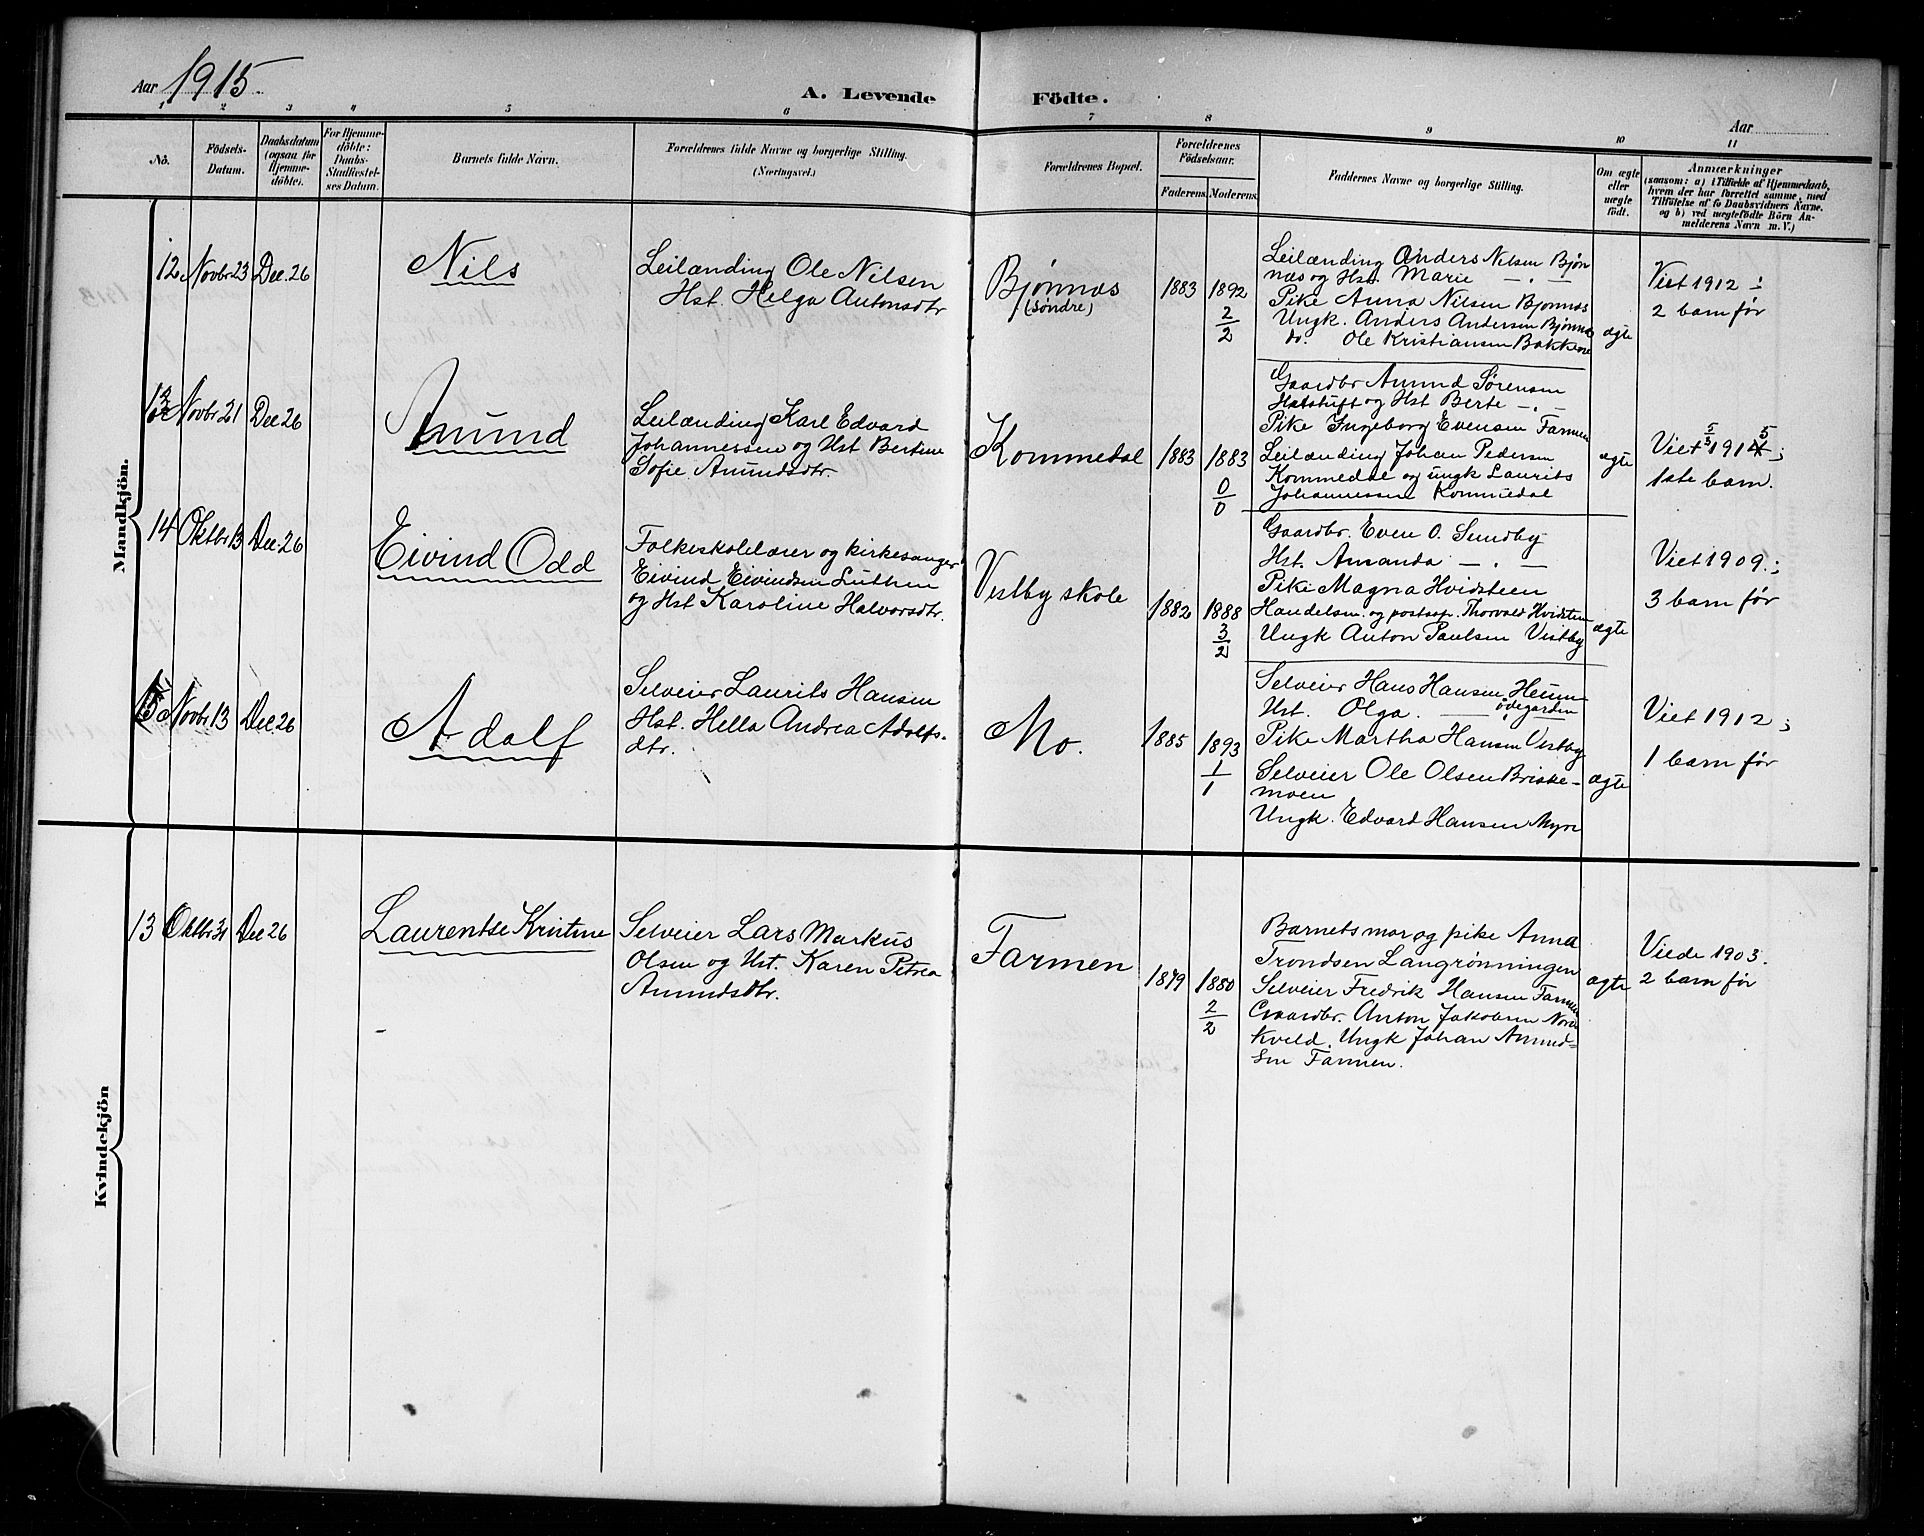 Aar 1915
A. Levende Födte.
Aar
1 2 3 4 5 6 7 8 9 10 11
No.
Födsels-
Datum.
Daabsdatum
(ogsaa for
Hjemme-
döbte).
For Hjemme-
döbte:
Daabs-
Stadfæstel-
ses Datum.
Barnets fulde Navn.
Forældrenes fulde Navne og borgerlige Stilling.
(Næringsvei.)
Forældrenes Bopæl.
Forældrenes
Födselsaar.
Faderens.
Moderens.
Faddernes Navne og borgerlige Stilling.
Om ægte
eller
uægte
födt.
Anmærkninger
(saasom: a) i Tilfælde af Hjemmedaab,
hvem der har forrettet samme, med
Tilföielse af to Daabsvidners Navne,
og b) ved uægtefödte Börn An-
melderens Navn m. V.)
Mandkjön.
12 Novbr 23 Dec. 26
Nils
Leilænding Ole Nilsen
Hst. Helga Antonsdtr
Bjønnæs
(søndre)
1883 1892
2/2
Leilænding Anders Nilsen Bjøn
næs og Hst. Marie — . —
Pike Anna Nilsen Bjønnæs
Ungk. Anders Andersen Bjønnæs
do. Ole Kristiansen Bakkene
ægte
Viet 1912 ;
2 barn før
13 Novbr 21 Dec 26
Amund
Leilænding Karl Edvard
Johannessen og Hst Bertine
Sofie Amundsdtr.
Kommedal
1883 1883
0/0
Gaardbr Amund Sørensen
og Hst Berte — . —
Pike Ingeborg Evensen Farmen
Leilænding Johan Pedersen
Kommedal og ungk Laurits
Johannessen Kommedal
ægte
Viet 5/3 1915;
1ste barn.
14 Oktbr 13 Dec. 26
Eivind Odd
Folkeskolelærer og kirkesanger
Eivind Eivindsen Luthen
og Hst Karoline Halvorsdtr.
Vestby skole
1882 1888
3/2
Gaardbr. Even O. Sundby
Hst. Amanda — . —
Pike Magna Hvidsteen
Handelsm. og postaap. Thorvald Hvidsteen
Ungk Anton Paulsen Vestby
ægte
Viet 1909.;
3 barn før
15 Novbr 13 Dec 26
Adolf
Selveier Laurits Hansen
Hst. Hella Andrea Adolfs-
dtr.
Mo.
1885 1893
1/1
Selveier Hans Hansen Heum
Hst. Olga. — ødegarden
Pike Martha Hansen Vestby
Selveier Ole Olsen Briske-
moen
Ungk. Edvard Hansen Myre
ægte
Viet 1912 ;
1 barn før
Kvindekjön
13 Oktbr 31 Dec 26
Laurentse Kristine
Selveier Lars Markus
Olsen og Hst. Karen Petrea
Amundsdtr.
Farmen
1879 1880
2/2
Barnets mor og pike Anna
Trondsen Langrønningen
Selveier Fredrik Hansen Farmen
Gaardbr. Anton Jakobsen Nord
Kveld. Ungk Johan Amund-
sen Farmen.
ægte
Viede 1903.
2 barn før